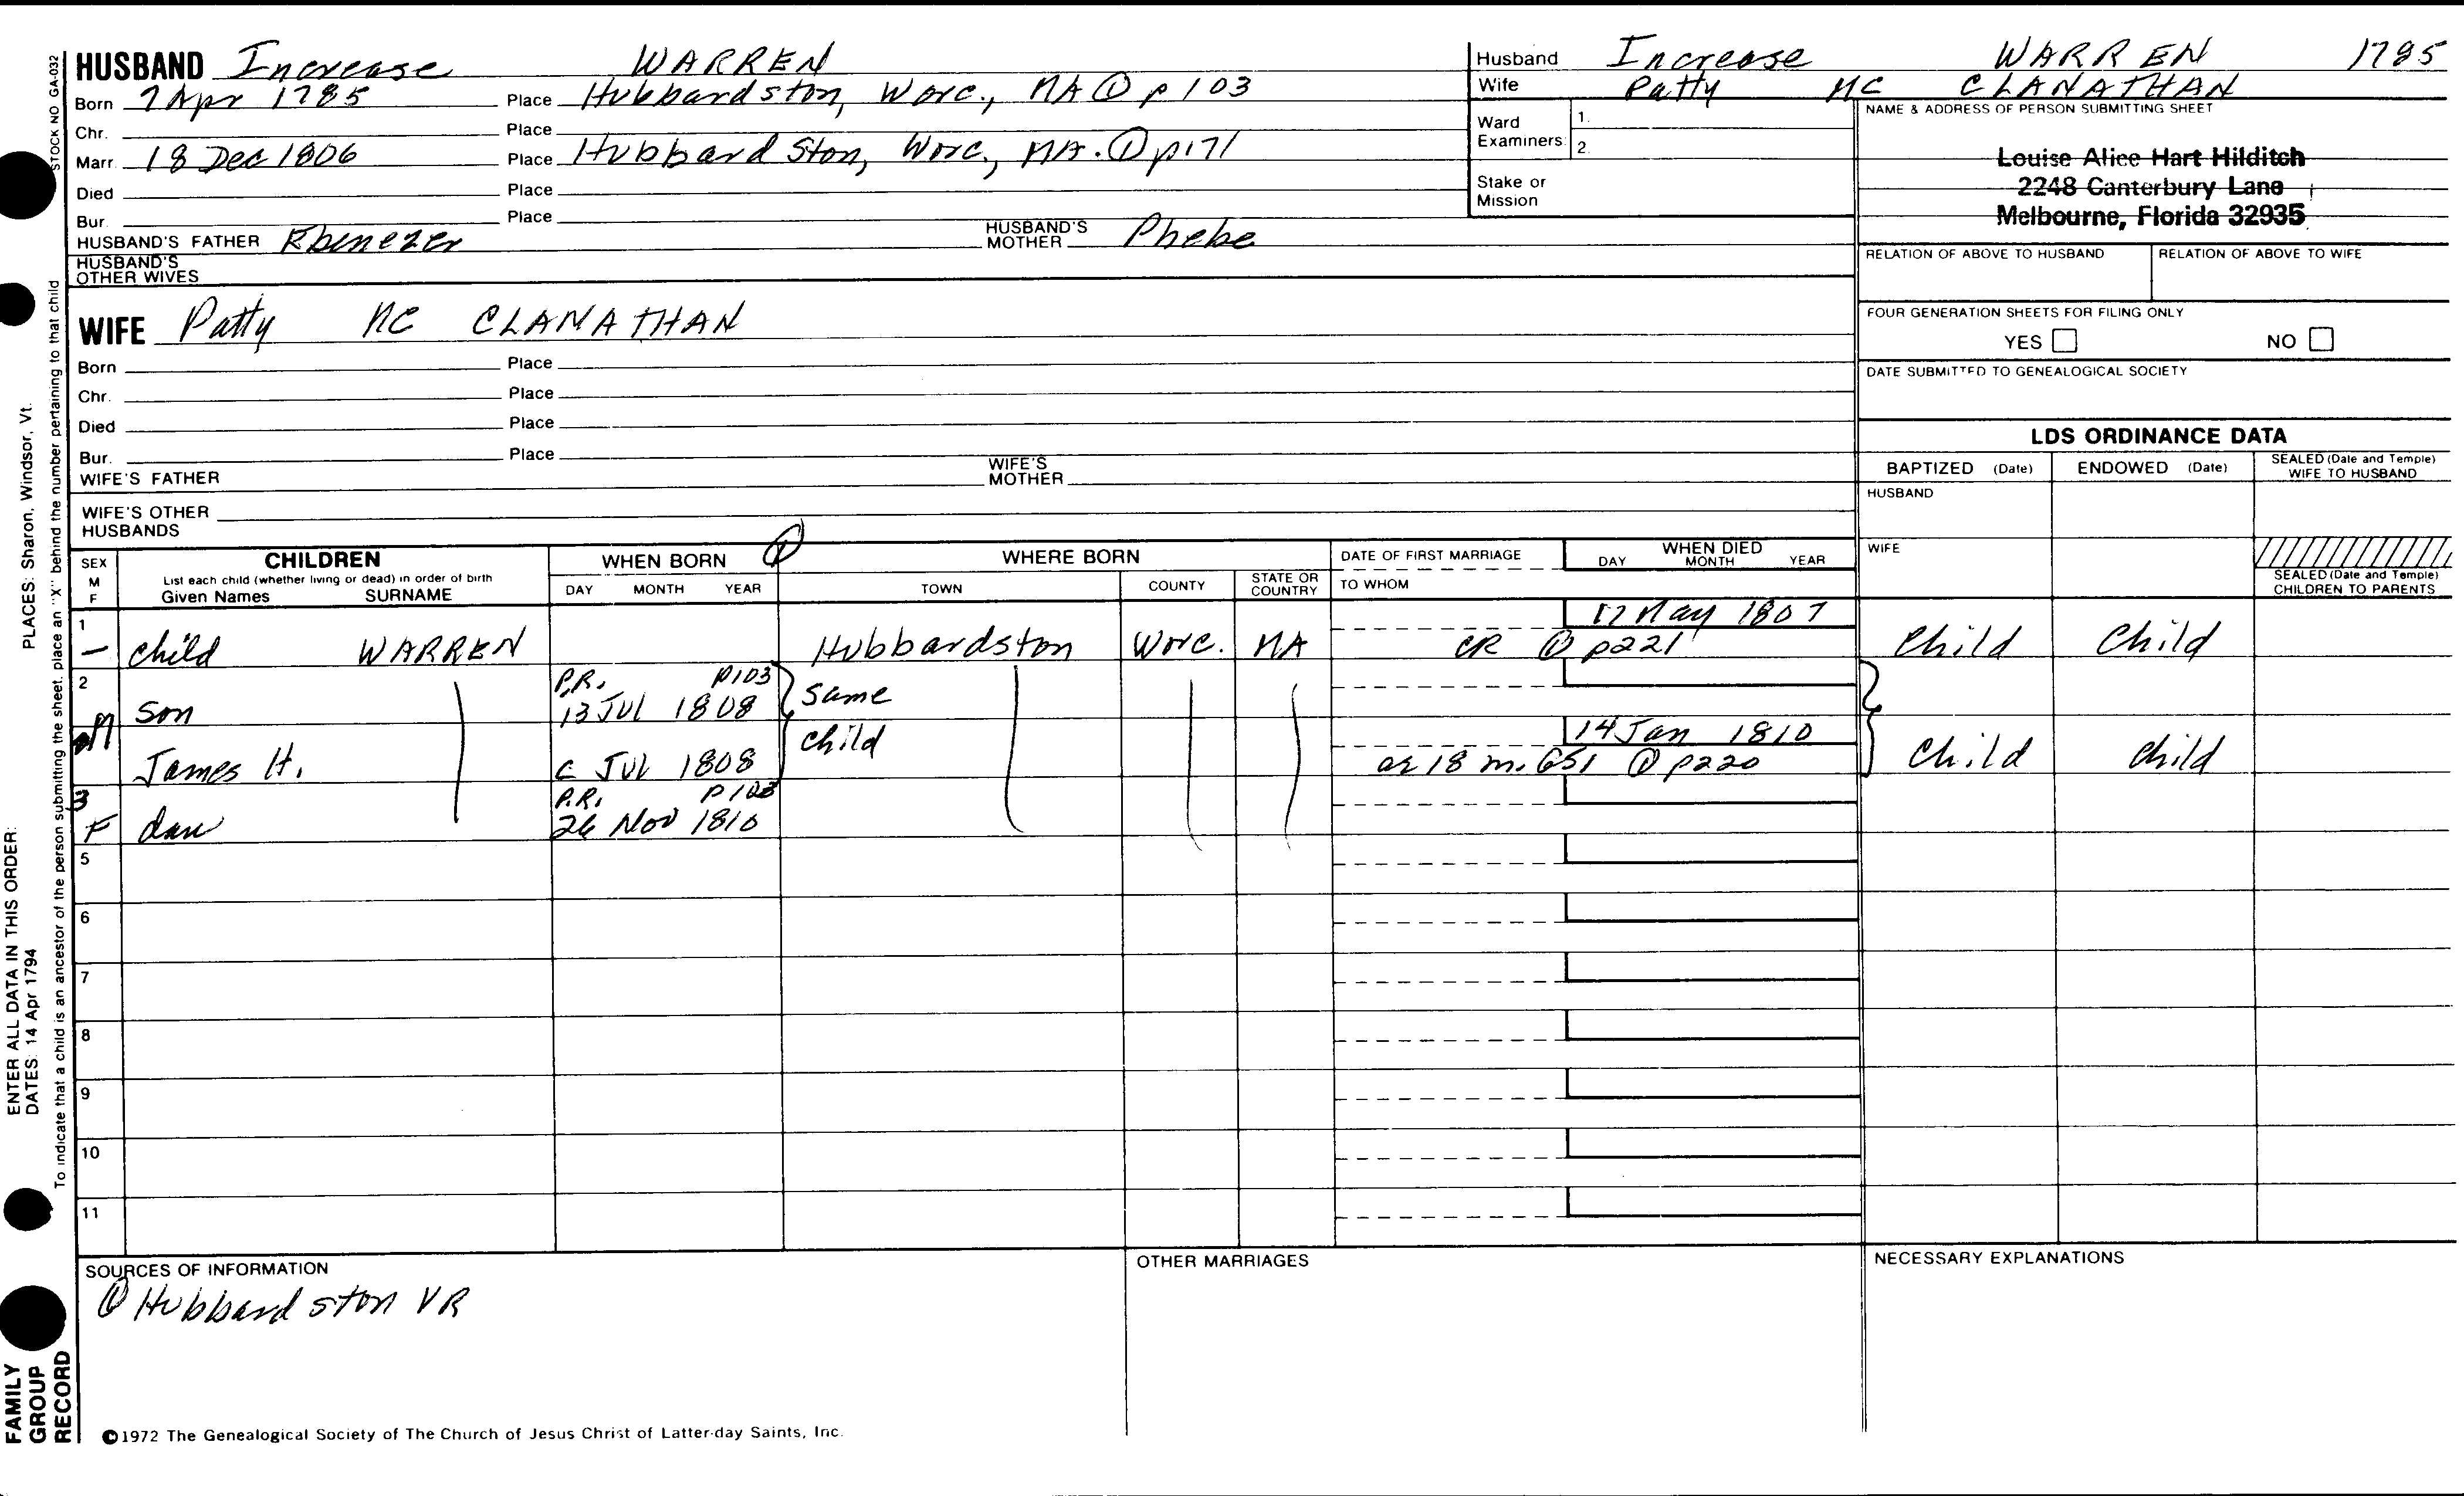 HUSBAND Increase WARREN
Born 7 Apr 1785 Place Hubbardston, Worc., MA ① p 103
Chr. Place
Marr. 18 Dec 1806 Place Hubbardston, Worc., MA. ① p171
Died Place
Bur. Place
HUSBAND'S FATHER Ebenezer HUSBAND'S MOTHER Phebe
HUSBAND'S OTHER WIVES
WIFE Patty MC CLANATHAN
Born Place
Chr. Place
Died Place
Bur. Place
WIFE'S FATHER WIFE'S MOTHER
WIFE'S OTHER HUSBANDS
Husband Increase WARREN 1785
Wife Patty MC CLANATHAN
Ward Examiners: 1. 2.
Stake or Mission
NAME & ADDRESS OF PERSON SUBMITTING SHEET
Louise Alice Hart Hilditch
2248 Canterbury Lane
Melbourne, Florida 32935
RELATION OF ABOVE TO HUSBAND RELATION OF ABOVE TO WIFE
FOUR GENERATION SHEETS FOR FILING ONLY
YES NO
DATE SUBMITTED TO GENEALOGICAL SOCIETY
LDS ORDINANCE DATA
BAPTIZED (Date) ENDOWED (Date) SEALED (Date and Temple) WIFE TO HUSBAND
HUSBAND
WIFE
SEALED (Date and Temple) CHILDREN TO PARENTS
SEX M F
CHILDREN
List each child (whether living or dead) in order of birth
Given Names SURNAME
WHEN BORN ①
DAY MONTH YEAR
WHERE BORN
TOWN COUNTY STATE OR COUNTRY
DATE OF FIRST MARRIAGE
TO WHOM
WHEN DIED
DAY MONTH YEAR
1 17 May 1807
– child WARREN Hubbardston Worc. MA CR ① p221 Child Child
2 P.R. p103
M son 13 Jul 1808 same
child 14 Jan 1810
James H. c Jul 1808 ae 18 m. GS1 ① p220 Child Child
3 P.R. p103
F dau 26 Nov 1810
5
6
7
8
9
10
11
SOURCES OF INFORMATION
① Hubbardston VR
OTHER MARRIAGES
NECESSARY EXPLANATIONS
©1972 The Genealogical Society of The Church of Jesus Christ of Latter-day Saints, Inc.
STOCK NO GA-032
To indicate that a child is an ancestor of the person submitting the sheet, place an "X" behind the number pertaining to that child
PLACES: Sharon, Windsor, Vt.
ENTER ALL DATA IN THIS ORDER:
DATES: 14 Apr 1794
FAMILY
GROUP
RECORD